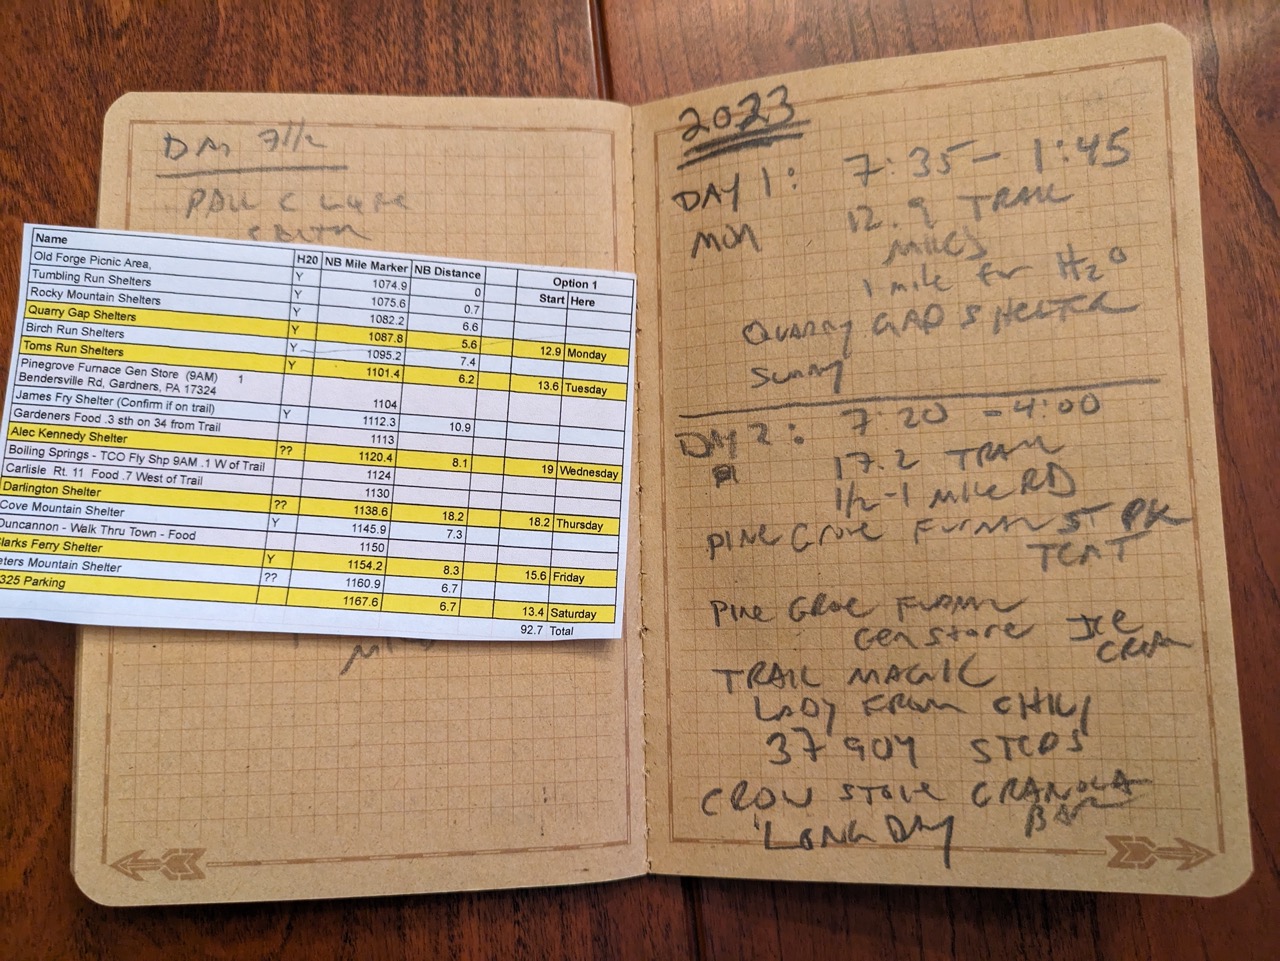 DAY 7 1/2
PACK
Name H20 NB Mile Marker NB Distance Option 1
Old Forge Picnic Area, Y 1074.9 0 Start Here
Tumbling Run Shelters Y 1075.6 0.7
Rocky Mountain Shelters Y 1082.2 6.6
Quarry Gap Shelters Y 1087.8 5.6 12.9 Monday
Birch Run Shelters Y 1095.2 7.4
Toms Run Shelters Y 1101.4 6.2 13.6 Tuesday
Pinegrove Furnace Gen Store (9AM) 1
Bendersville Rd, Gardners, PA 17324 1104
James Fry Shelter (Confirm if on trail) Y 1112.3 10.9
Gardeners Food .3 sth on 34 from Trail 1113
Alec Kennedy Shelter ?? 1120.4 8.1 19 Wednesday
Boiling Springs - TCO Fly Shp 9AM .1 W of Trail 1124
Carlisle Rt. 11 Food .7 West of Trail 1130
Darlington Shelter ?? 1138.6 18.2 18.2 Thursday
Cove Mountain Shelter Y 1145.9 7.3
Duncannon - Walk Thru Town - Food 1150
larks Ferry Shelter Y 1154.2 8.3 15.6 Friday
eters Mountain Shelter ?? 1160.9 6.7
325 Parking 1167.6 6.7 13.4 Saturday
92.7 Total
2023
DAY 1: 7:35 - 1:45
MON 12.9 TRAIL
MILES
1 mile for H2O
QUARRY GAP SHELTER
SUNNY
DAY 2: 7:20 - 4:00
17.2 TRAIL
1/2-1 MILE RD
PINE GROVE FURNACE ST PK
TENT
PINE GROVE FURNACE
GEN STORE ICE
CREAM
TRAIL MAGIC
LADY FROM CHILI
37904 STEPS
CROW STOLE GRANOLA
BAR
LONG DAY